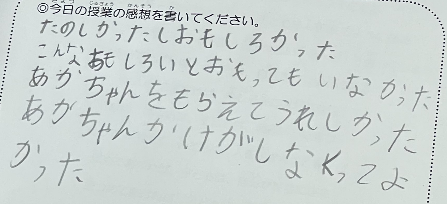 ◎今日の授業の感想を書いてください。
たのしかったしおもしろかった
こんなおもしろいとおもってもいなかった
あかちゃんをもらえてうれしかった
あかちゃんかけがしなくってよ
かった